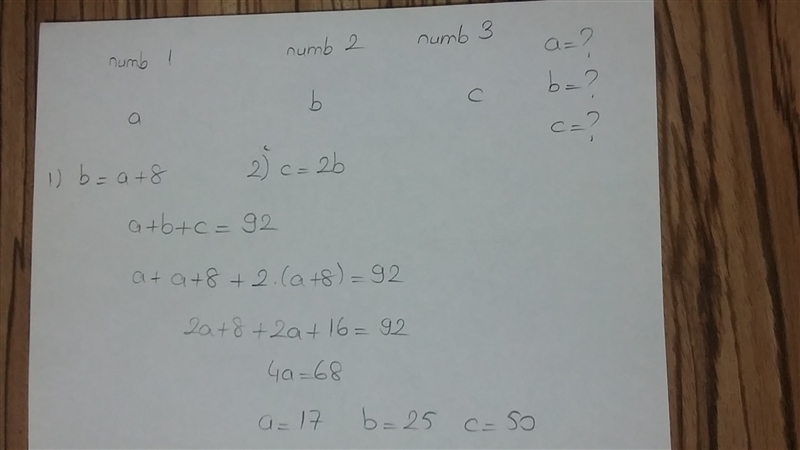 numb 1 numb 2 numb 3 a=?
a b c b=?
c=?
1) b = a+8 2) c = 2b
a+b+c = 92
a+ a+8 + 2.(a+8) = 92
2a+8 +2a+16= 92
4a=68
a=17 b=25 c=50